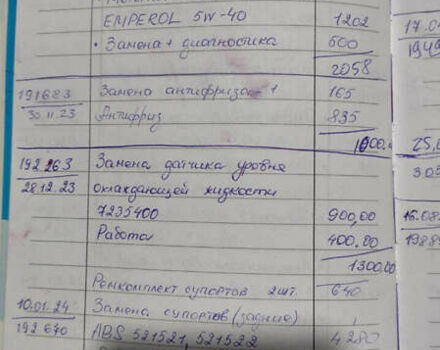 EMPEROL 5W-40 1202
• Замена + диагностика 500
2058
191683 Замена антифриза 1 165
30.11.23 Антифриз 835
1000.
192263 Замена датчика уровня
28.12.23 охлаждающей жидкости
7235400 900,00
Работа 400.00
1300.00
Ремкомплект супортов 2шт. 640
10.01.24 Замена супортов (задние)
192640 ABS 521521, 521522 4280
17.0
25.0
16.08